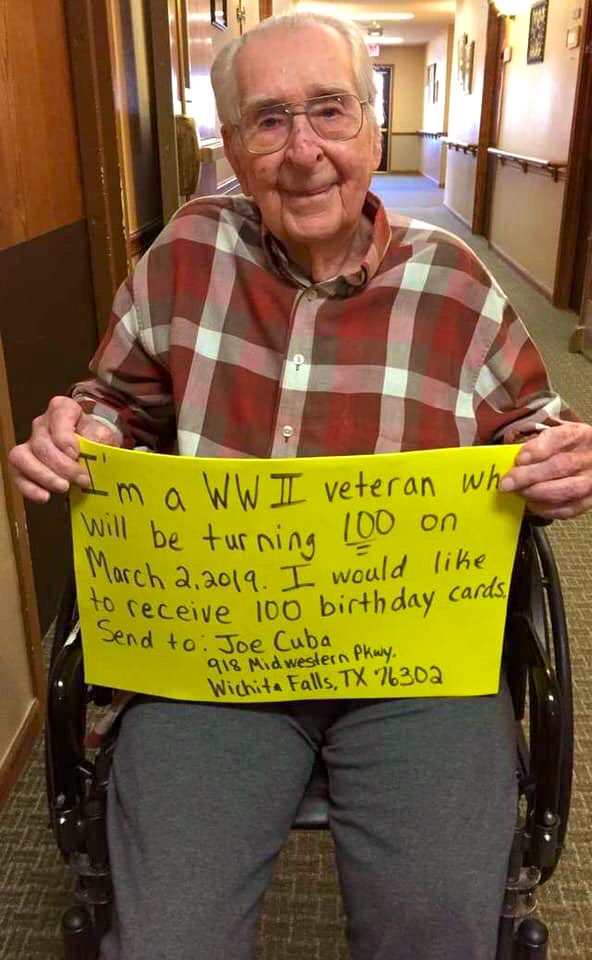 I'm a WW II veteran wh
will be turning 100 on
March 2, 2019. I would like
to receive 100 birthday cards.
Send to: Joe Cuba
918 Midwestern Pkwy.
Wichita Falls, TX 76302